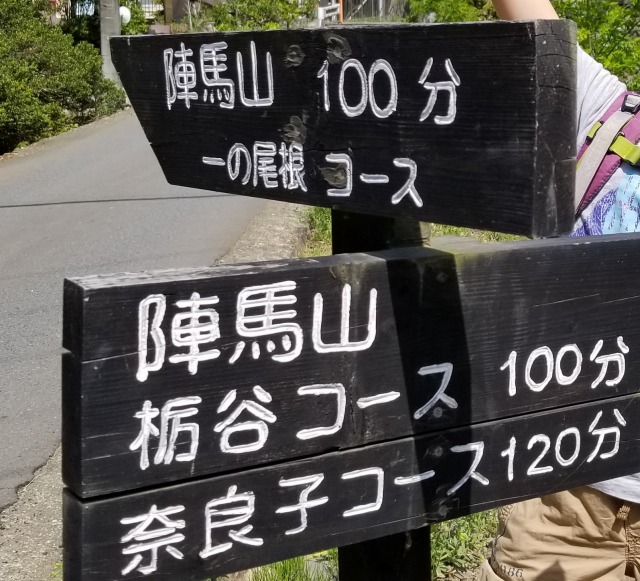 陣馬山 100分
一の尾根 コース
陣馬山
栃谷コース 100分
奈良子コース120分